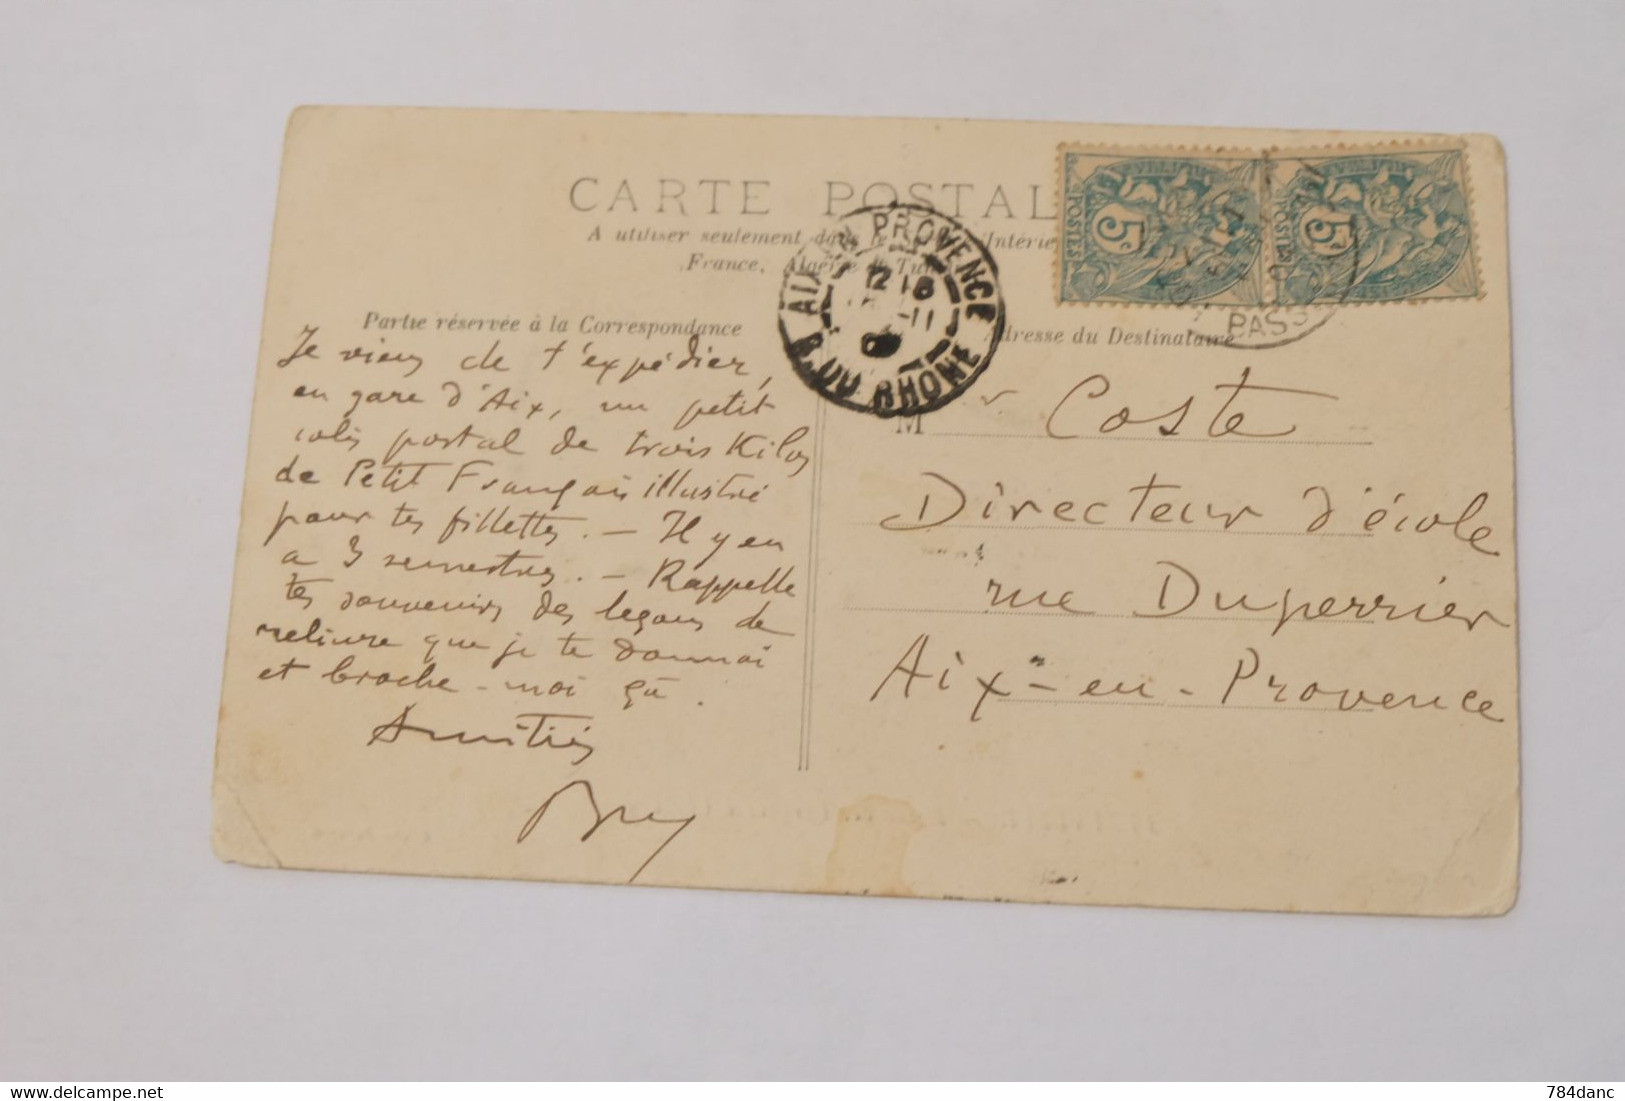 CARTE POSTAL
A utiliser seulement dans le Intérie
France, Algérie & Tuni
Partie réservée à la Correspondance
Adresse du Destinataire
AIX EN PROVENCE
12 18
11
B. DU RHONE
POSTES 5c
POSTES 5c
BASS
Je viens de t'expédier,
en gare d'Aix, un petit
colis postal de trois Kilos
de Petit Français illustré
pour tes fillettes. — Il y en
a 3 semestres. — Rappelle
tes souvenirs des leçons de
reliure que je te donnai
et broche-moi ça.
Amitiés
M r Coste
Directeur d'école
rue Duperrier
Aix-en-Provence
784danc